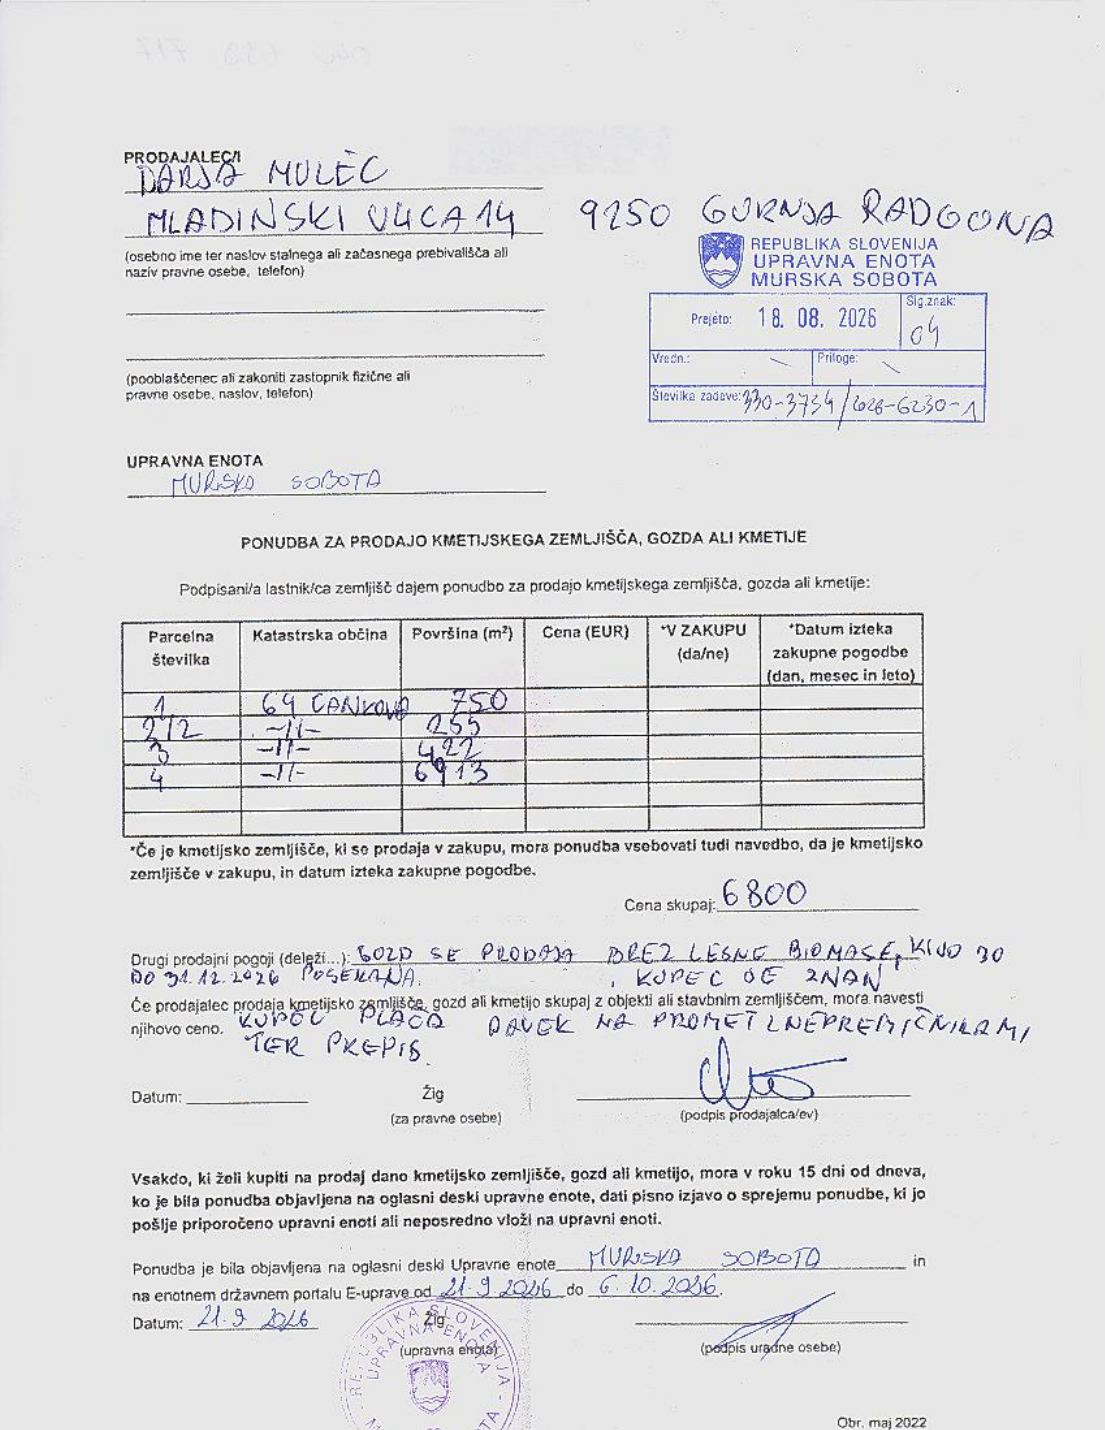 PRODAJALEC/I
DARJA MULEC
MLADINSKI ULICA 14 9250 GORNJA RADGONA
(osebno ime ter naslov stalnega ali začasnega prebivališča ali
naziv pravne osebe, telefon)
REPUBLIKA SLOVENIJA
UPRAVNA ENOTA
MURSKA SOBOTA
Prejeto: 18. 08. 2026 Sig.znak: 04
Vredn.: Priloge:
Številka zadeve: 330-3734/2026-6230-1
(pooblaščenec ali zakoniti zastopnik fizične ali
pravne osebe, naslov, telefon)
UPRAVNA ENOTA
MURSKA SOBOTA
PONUDBA ZA PRODAJO KMETIJSKEGA ZEMLJIŠČA, GOZDA ALI KMETIJE
Podpisani/a lastnik/ca zemljišč dajem ponudbo za prodajo kmetijskega zemljišča, gozda ali kmetije:
Parcelna številka Katastrska občina Površina (m²) Cena (EUR) *V ZAKUPU (da/ne) *Datum izteka zakupne pogodbe (dan, mesec in leto)
1 64 CANKOVA 750
2/2 -//- 255
3 -//- 422
4 -//- 6913
*Če je kmetijsko zemljišče, ki se prodaja v zakupu, mora ponudba vsebovati tudi navedbo, da je kmetijsko
zemljišče v zakupu, in datum izteka zakupne pogodbe.
Cena skupaj: 6800
Drugi prodajni pogoji (deleži...): GOZD SE PRODAJA BREZ LESNE BIOMASE, KI JO BO
DO 31.12.2026 POSEKANA. , KUPEC JE ZNAN
Če prodajalec prodaja kmetijsko zemljišče, gozd ali kmetijo skupaj z objekti ali stavbnim zemljiščem, mora navesti
njihovo ceno. KUPEC PLAČA DAVEK NA PROMET Z NEPREMIČNINAMI
TER PREPIS.
Datum: Žig
(za pravne osebe) (podpis prodajalca/ev)
Vsakdo, ki želi kupiti na prodaj dano kmetijsko zemljišče, gozd ali kmetijo, mora v roku 15 dni od dneva,
ko je bila ponudba objavljena na oglasni deski upravne enote, dati pisno izjavo o sprejemu ponudbe, ki jo
pošlje priporočeno upravni enoti ali neposredno vloži na upravni enoti.
Ponudba je bila objavljena na oglasni deski Upravne enote MURSKA SOBOTA in
na enotnem državnem portalu E-uprave od 21.9.2026 do 6.10.2026.
Datum: 21.9.2026 Žig
(upravna enota) (podpis uradne osebe)
REPUBLIKA SLOVENIJA
UPRAVNA ENOTA
Obr. maj 2022